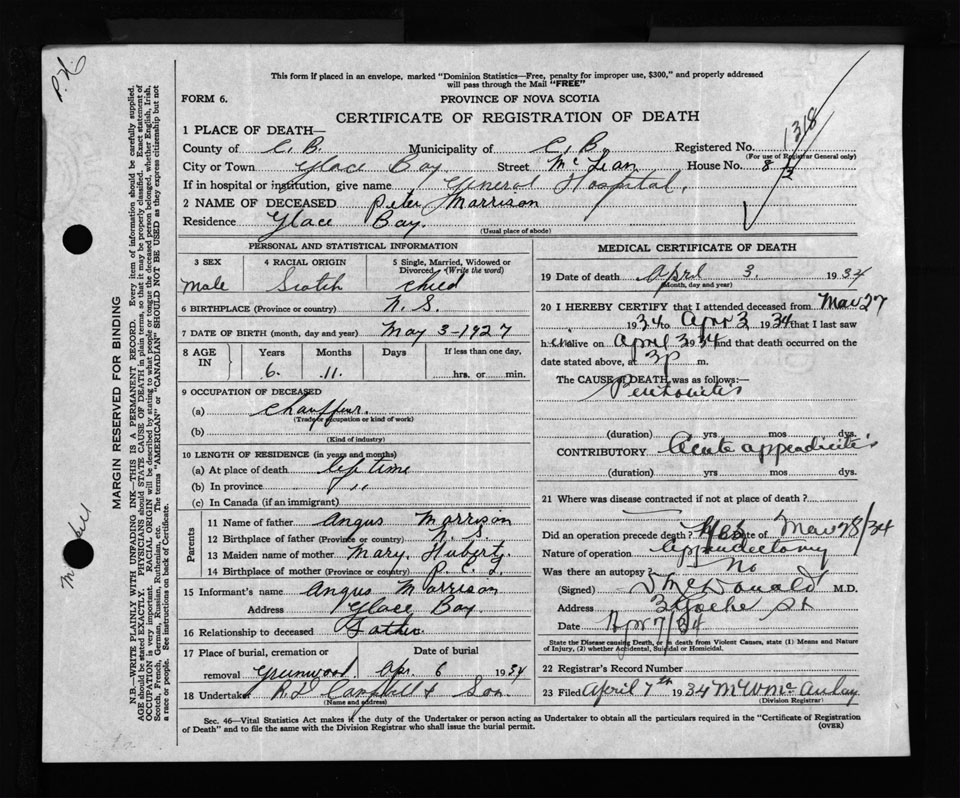 P.N.
This form if placed in an envelope, marked "Dominion Statistics—Free, penalty for improper use, $300," and properly addressed
will pass through the Mail "FREE"
FORM 6.
PROVINCE OF NOVA SCOTIA
CERTIFICATE OF REGISTRATION OF DEATH
1318
1 PLACE OF DEATH—
County of C. B. Municipality of C. B. Registered No.
(For use of Registrar General only)
City or Town Glace Bay Street McLean House No. 8 1/2
If in hospital or institution, give name General Hospital.
2 NAME OF DECEASED Peter Morrison
Residence Glace Bay.
(Usual place of abode)
PERSONAL AND STATISTICAL INFORMATION
3 SEX 4 RACIAL ORIGIN 5 Single, Married, Widowed or Divorced (Write the word)
Male Scotch Child
6 BIRTHPLACE (Province or country) N. S.
7 DATE OF BIRTH (month, day and year) May 3-1927
8 AGE IN Years Months Days If less than one day,
6. 11. hrs. or min.
9 OCCUPATION OF DECEASED
(a) Chauffeur.
(Trade, occupation or kind of work)
(b)
(Kind of industry)
10 LENGTH OF RESIDENCE (in years and months)
(a) At place of death life time
(b) In province " "
(c) In Canada (if an immigrant)
Parents
11 Name of father Angus Morrison
12 Birthplace of father (Province or country) N. S.
13 Maiden name of mother Mary Hubert.
14 Birthplace of mother (Province or country) P. E. I.
15 Informant's name Angus Morrison
Address Glace Bay.
16 Relationship to deceased Father.
17 Place of burial, cremation or removal Date of burial
Greenwood. Apr. 6 1934
18 Undertaker R D Campbell & Son.
(Name and address)
MEDICAL CERTIFICATE OF DEATH
19 Date of death April 3. 1934
(Month, day and year)
20 I HEREBY CERTIFY that I attended deceased from Mar 27
1934 to Apr 3 1934 that I last saw
him alive on April 3 1934 and that death occurred on the
date stated above, at 3 p m.
The CAUSE of DEATH was as follows:—
Peritonitis
(duration) yrs mos dys.
CONTRIBUTORY Acute appendicitis
(duration) yrs. mos. dys.
21 Where was disease contracted if not at place of death?
Did an operation precede death? Yes Date of Mar 28/34
Nature of operation Appendectomy
Was there an autopsy? No
(Signed) McDonald M.D.
Address St
Date Apr 7/34
State the Disease causing Death, or in death from Violent Causes, state (1) Means and Nature
of Injury, (2) whether Accidental, Suicidal or Homicidal.
22 Registrar's Record Number
23 Filed April 7th 1934 M W McAulay
(Division Registrar)
Sec. 46—Vital Statistics Act makes it the duty of the Undertaker or person acting as Undertaker to obtain all the particulars required in the "Certificate of Registration
of Death" and to file the same with the Division Registrar who shall issue the burial permit.
(OVER)
MARGIN RESERVED FOR BINDING
N.B.—WRITE PLAINLY WITH UNFADING INK—THIS IS A PERMANENT RECORD. Every item of information should be carefully supplied.
AGE should be stated EXACTLY. PHYSICIANS should STATE CAUSE OF DEATH in plain terms, so that it may be properly classified. Exact statement of
OCCUPATION is very important. RACIAL ORIGIN will be described by stating to what people or tongue the deceased person belonged, whether English, Irish,
Scotch, French, German, Russian, Ruthenian, etc. The terms "AMERICAN" or "CANADIAN" SHOULD NOT BE USED as they express citizenship but not
a race or people. See instructions on back of Certificate.